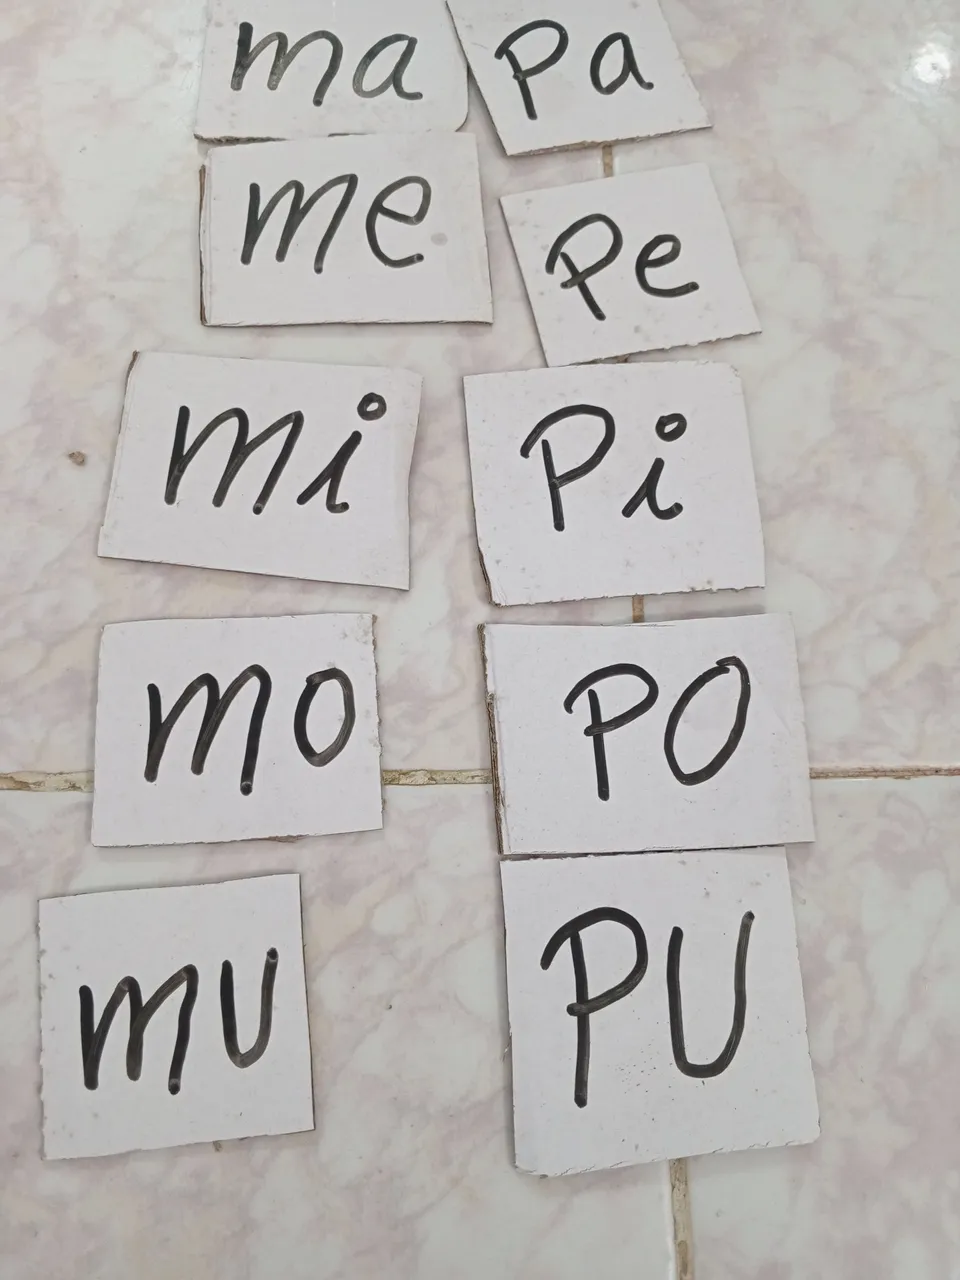 ma pa
me Pe
mi Pi
mo PO
mu PU